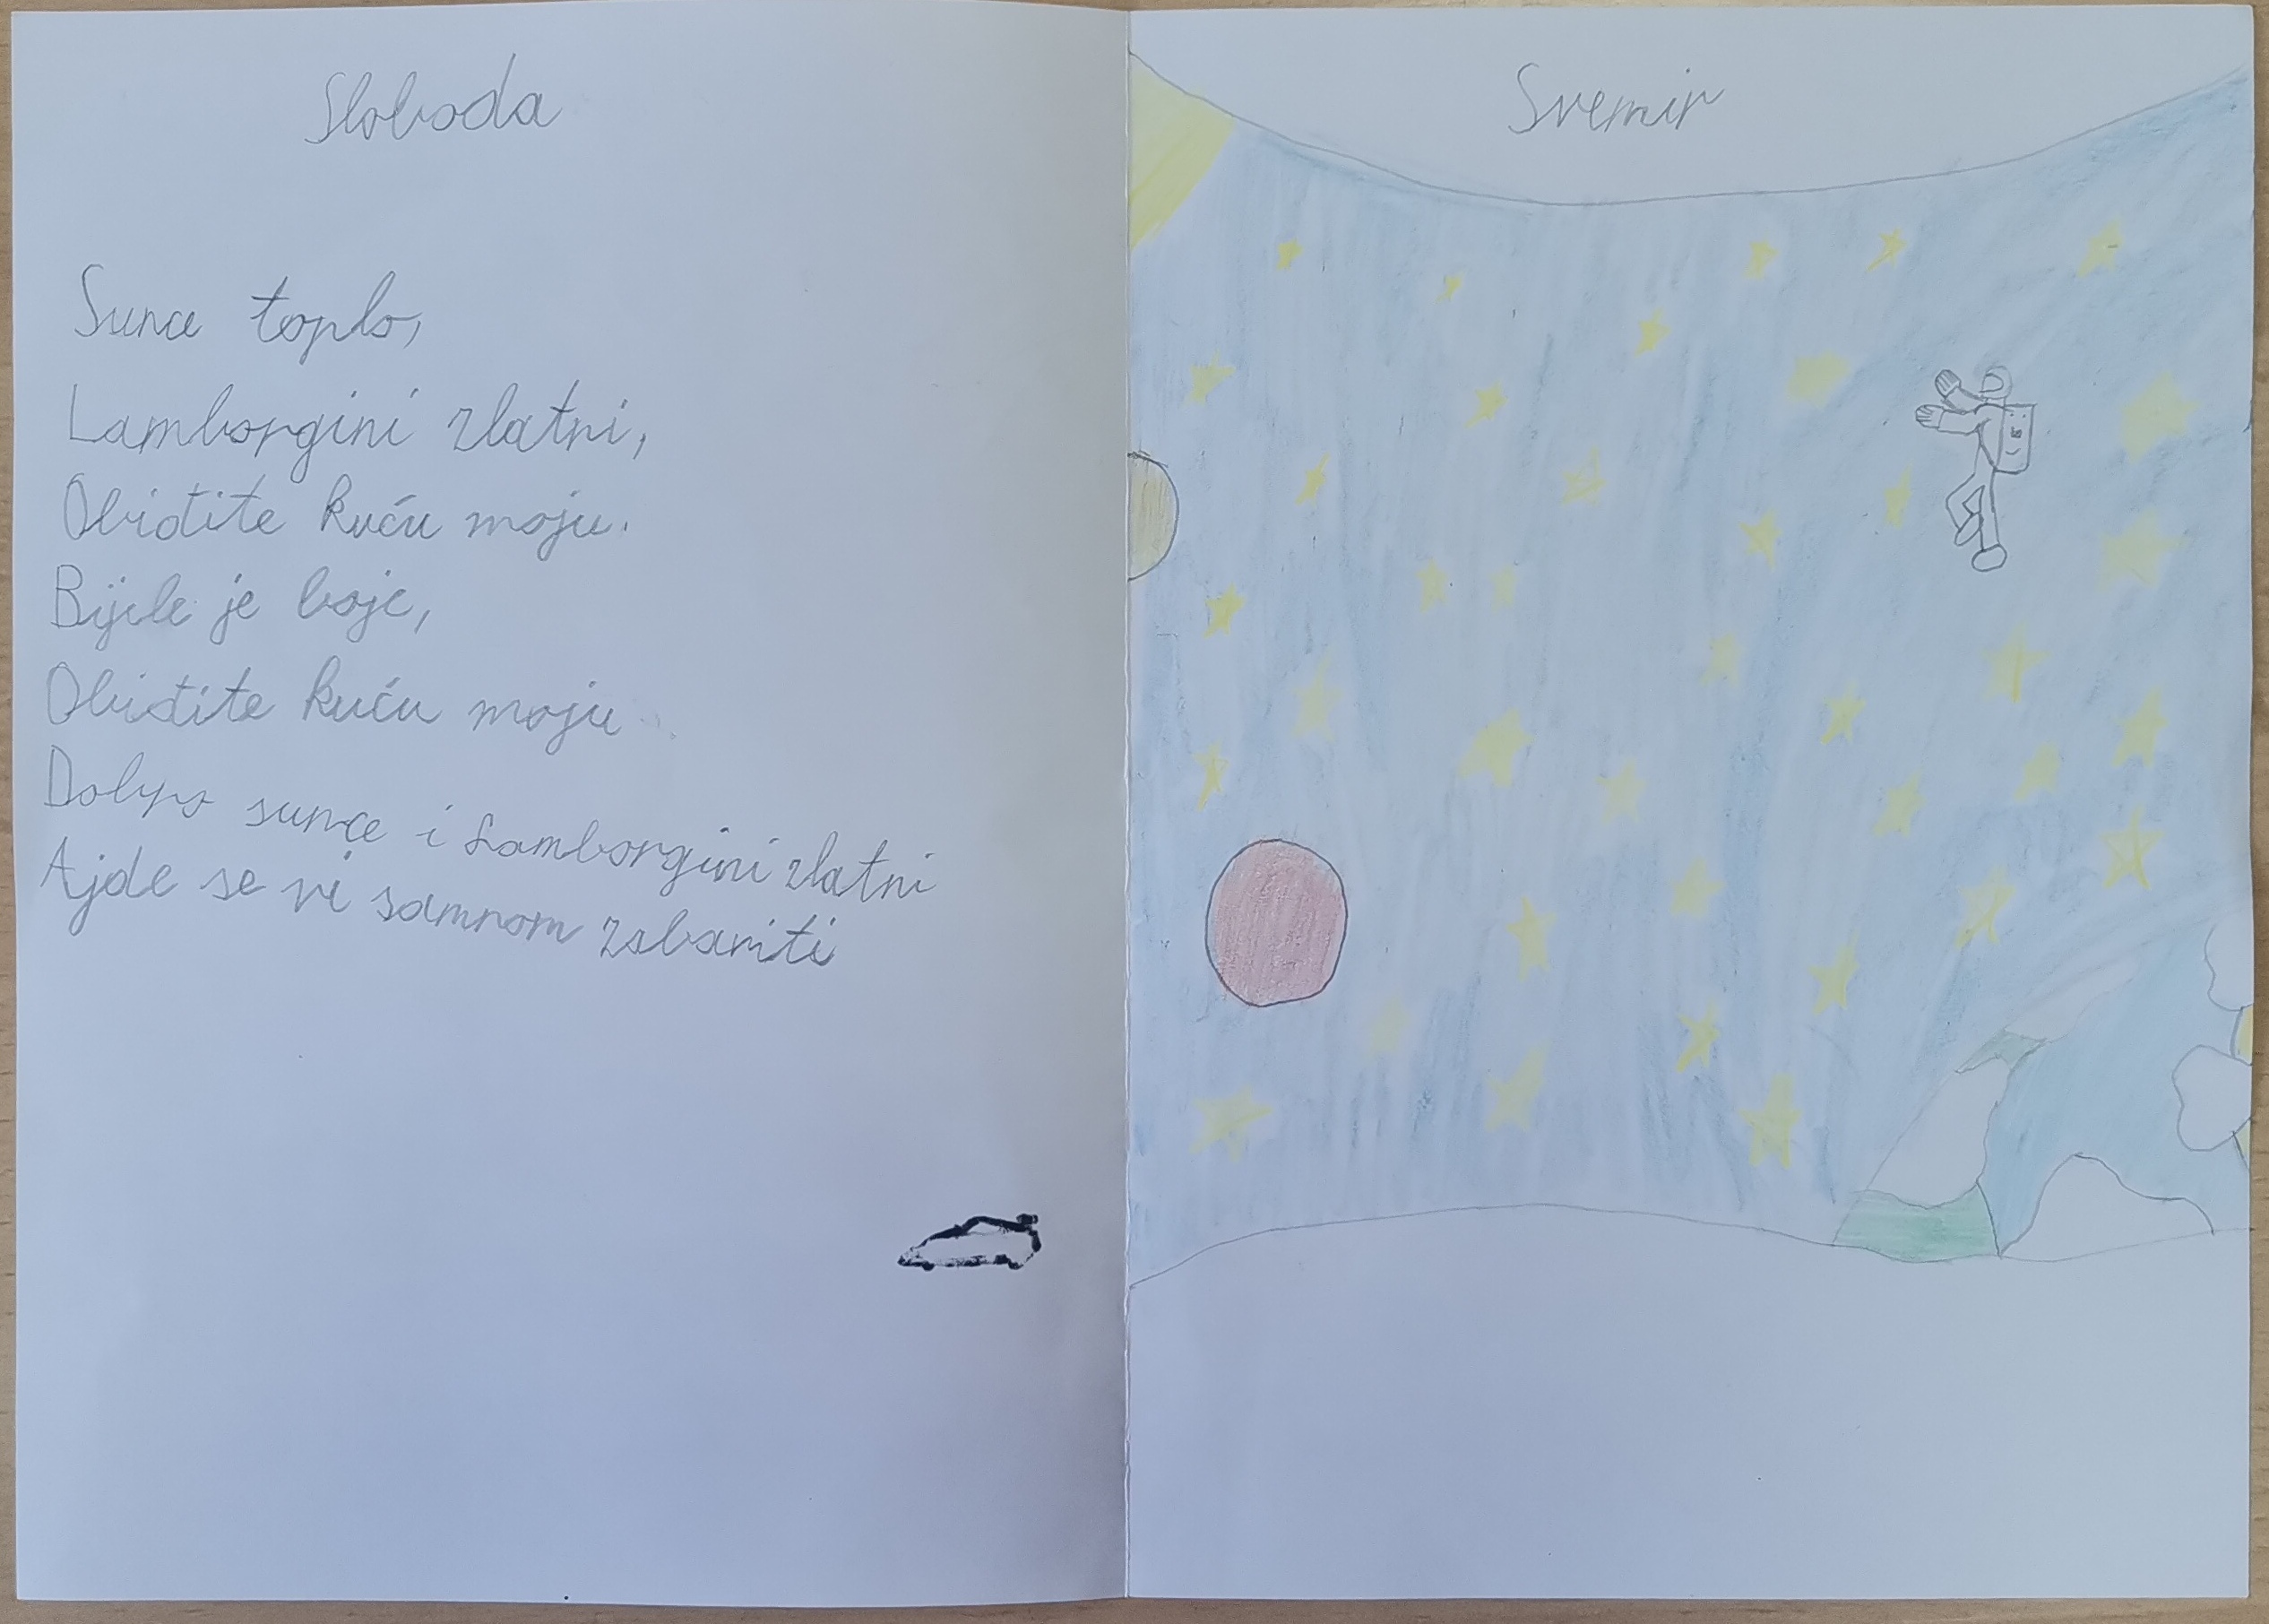 Sloboda
Sunce toplo,
Lamborgini zlatni,
Obiđite kuću moju.
Bijele je boje,
Obiđite kuću moju
sunce i Lamborgini zlatni
Ajde se vi samnom zabaviti
Svemir